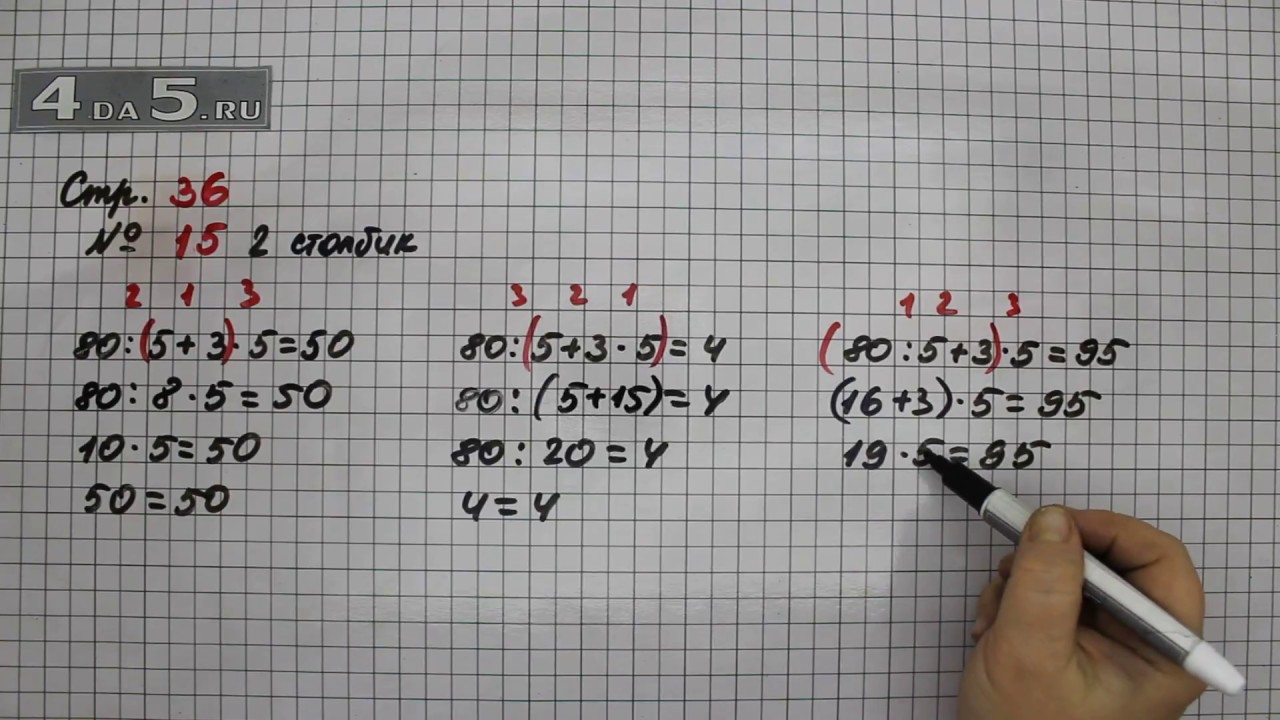 4DA5.RU
Стр. 36
№ 15 2 столбик
2 1 3
80:(5+3)·5=50
80:8·5=50
10·5=50
50=50
3 2 1
80:(5+3·5)=4
80:(5+15)=4
80:20=4
4=4
1 2 3
(80:5+3)·5=95
(16+3)·5=95
19·5=95